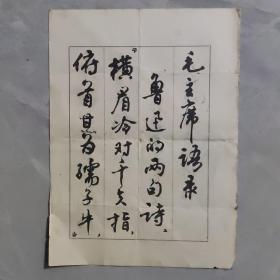 毛主席语录
鲁迅的两句诗、
“横眉冷对千夫指，
俯首甘为孺子牛”。